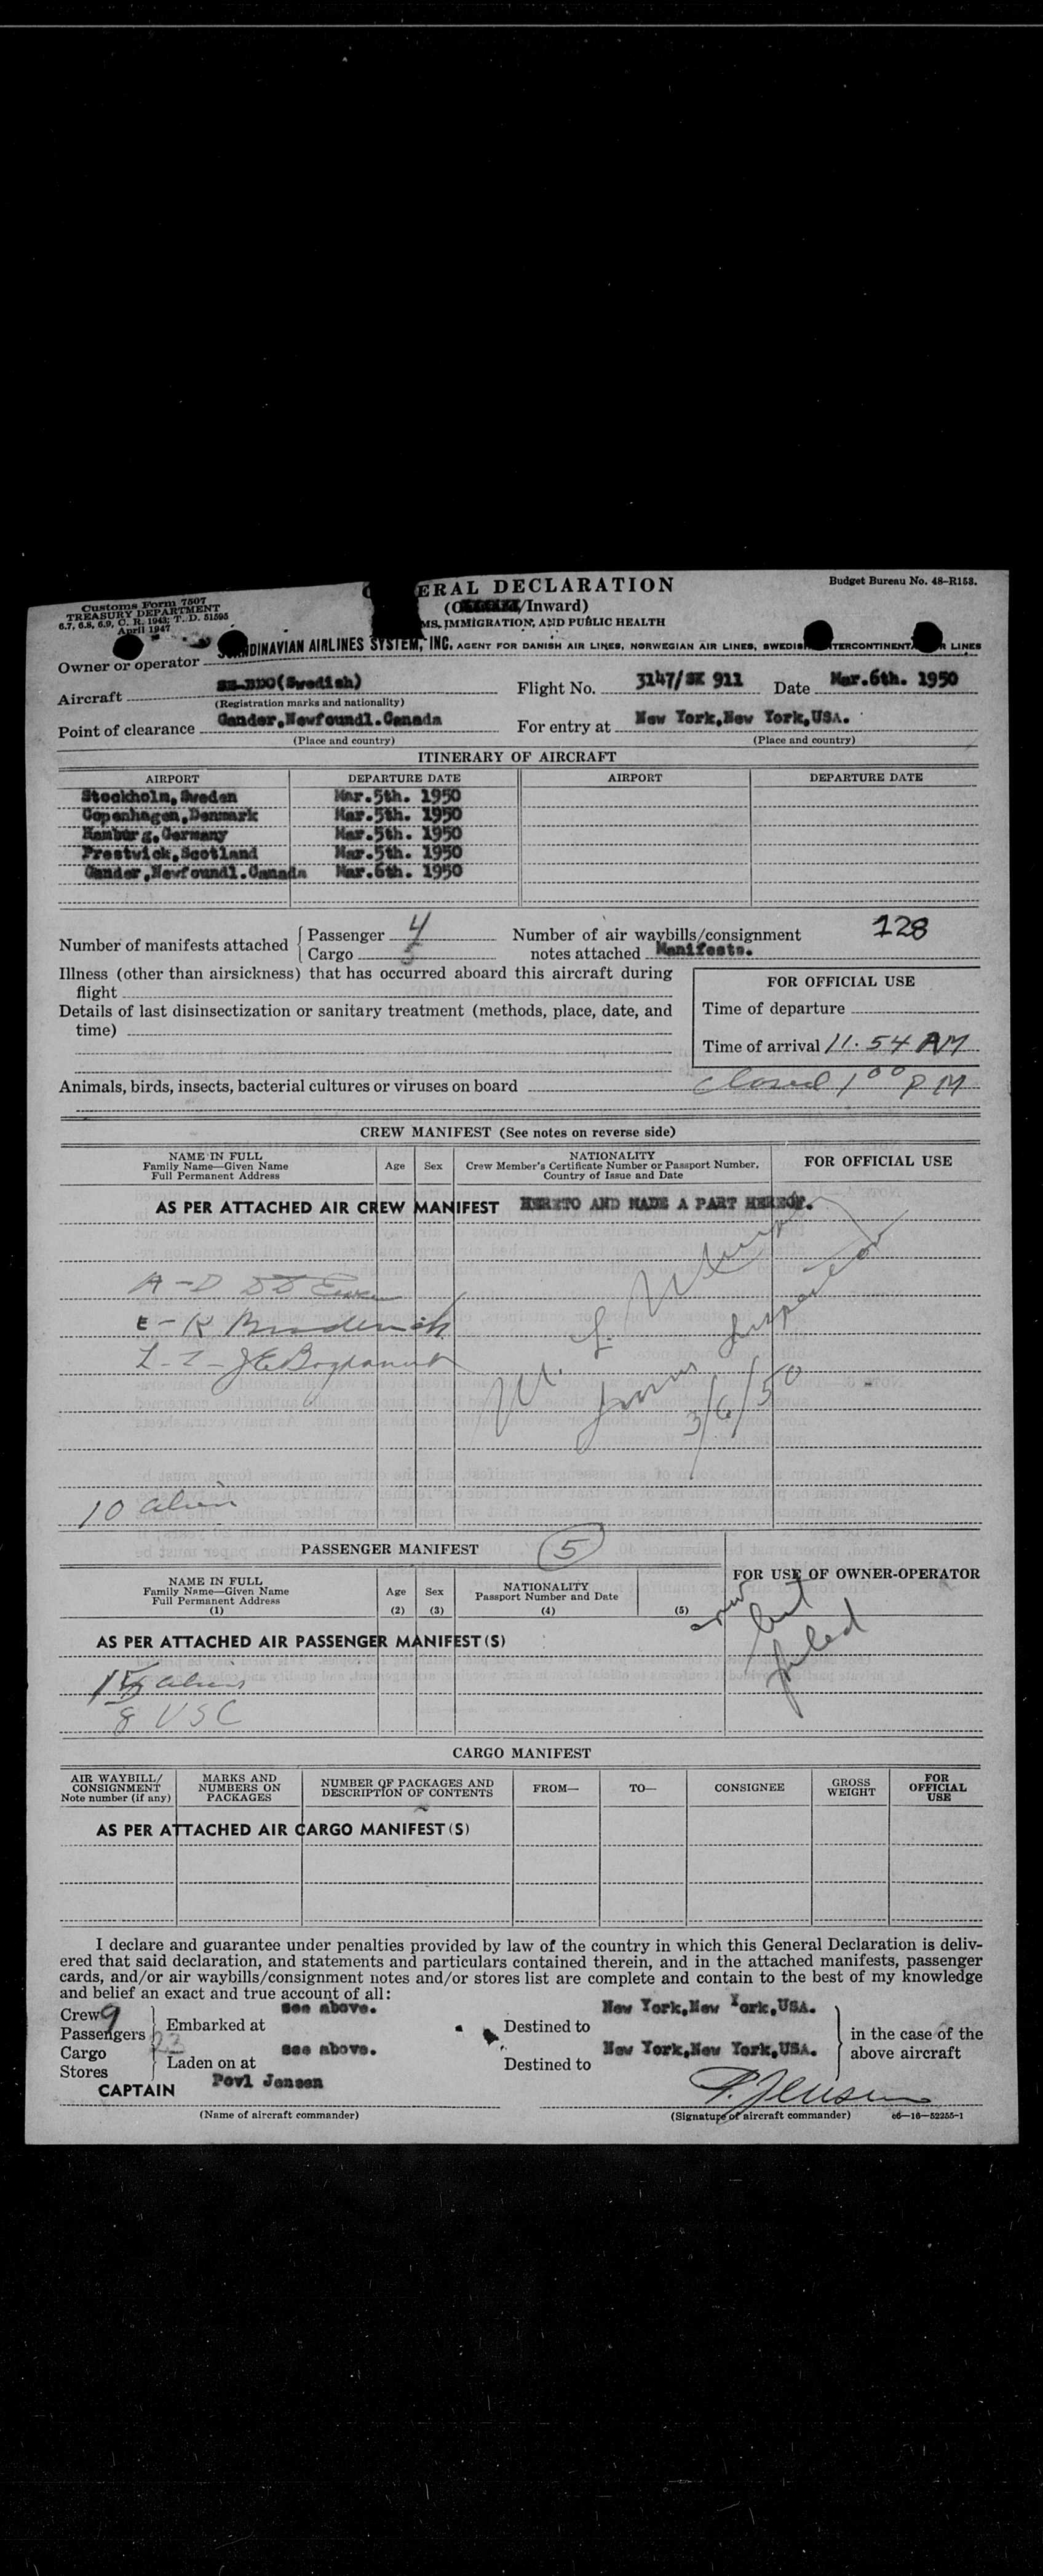 Customs Form 7507
TREASURY DEPARTMENT
6.7, 6.8, 6.9, C. R. 1943; T. D. 51595
April 1947
ERAL DECLARATION
Budget Bureau No. 48-R153.
/Inward)
MS, IMMIGRATION, AND PUBLIC HEALTH
Owner or operator DINAVIAN AIRLINES SYSTEM, INC. AGENT FOR DANISH AIR LINES, NORWEGIAN AIR LINES, SWEDISH TERCONTINENTAL LINES
Aircraft SE-BDO(Swedish) Flight No. 3147/SK 911 Date Mar.6th. 1950
(Registration marks and nationality)
Point of clearance Gander,Newfoundl.Canada For entry at New York,New York,USA.
(Place and country) (Place and country)
ITINERARY OF AIRCRAFT
AIRPORT DEPARTURE DATE AIRPORT DEPARTURE DATE
Stockholm,Sweden Mar.5th. 1950
Copenhagen,Denmark Mar.5th. 1950
Hamburg,Germany Mar.5th. 1950
Prestwick,Scotland Mar.5th. 1950
Gander,Newfoundl.Canada Mar.6th. 1950
Number of manifests attached Passenger 4 Number of air waybills/consignment 128
Cargo 5 notes attached Manifests.
Illness (other than airsickness) that has occurred aboard this aircraft during
flight
Details of last disinsectization or sanitary treatment (methods, place, date, and
time)
FOR OFFICIAL USE
Time of departure
Time of arrival 11.54 AM
Closed 1 00 PM
Animals, birds, insects, bacterial cultures or viruses on board
CREW MANIFEST (See notes on reverse side)
NAME IN FULL
Family Name—Given Name
Full Permanent Address
Age Sex
NATIONALITY
Crew Member's Certificate Number or Passport Number,
Country of Issue and Date
FOR OFFICIAL USE
AS PER ATTACHED AIR CREW MANIFEST HERETO AND MADE A PART HEREOF.
A-D
E-K Broderick
L-Z-JE
Inspector
3/6/50
10 alien
PASSENGER MANIFEST 5
NAME IN FULL
Family Name—Given Name
Full Permanent Address
(1)
Age
(2)
Sex
(3)
NATIONALITY
Passport Number and Date
(4)
(5)
FOR USE OF OWNER-OPERATOR
crew
list
filed
AS PER ATTACHED AIR PASSENGER MANIFEST(S)
aliens
8 USC
CARGO MANIFEST
AIR WAYBILL/
CONSIGNMENT
Note number (if any)
MARKS AND
NUMBERS ON
PACKAGES
NUMBER OF PACKAGES AND
DESCRIPTION OF CONTENTS
FROM—
TO—
CONSIGNEE
GROSS
WEIGHT
FOR
OFFICIAL
USE
AS PER ATTACHED AIR CARGO MANIFEST(S)
I declare and guarantee under penalties provided by law of the country in which this General Declaration is deliv-
ered that said declaration, and statements and particulars contained therein, and in the attached manifests, passenger
cards, and/or air waybills/consignment notes and/or stores list are complete and contain to the best of my knowledge
and belief an exact and true account of all:
Crew 9 Embarked at see above. Destined to New York,New York,USA.
Passengers
Cargo Laden on at see above. Destined to New York,New York,USA.
Stores
in the case of the
above aircraft
CAPTAIN Povl Jensen P. Jensen
(Name of aircraft commander) (Signature of aircraft commander) c6—16—52255-1